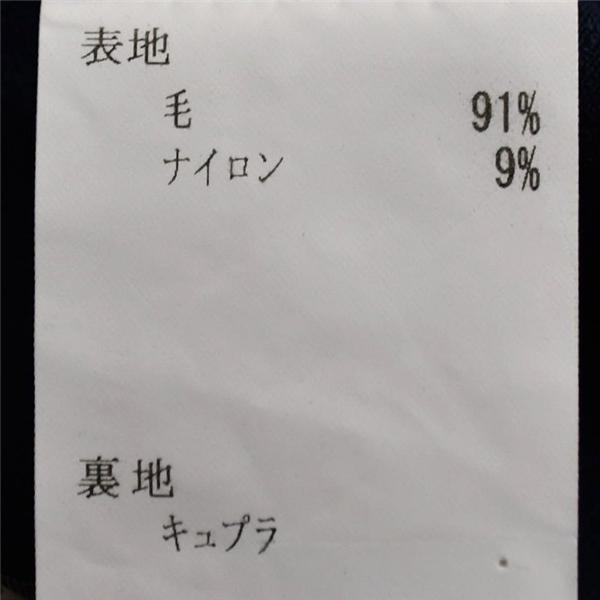 表地
毛 91%
ナイロン 9%
裏地
キュプラ